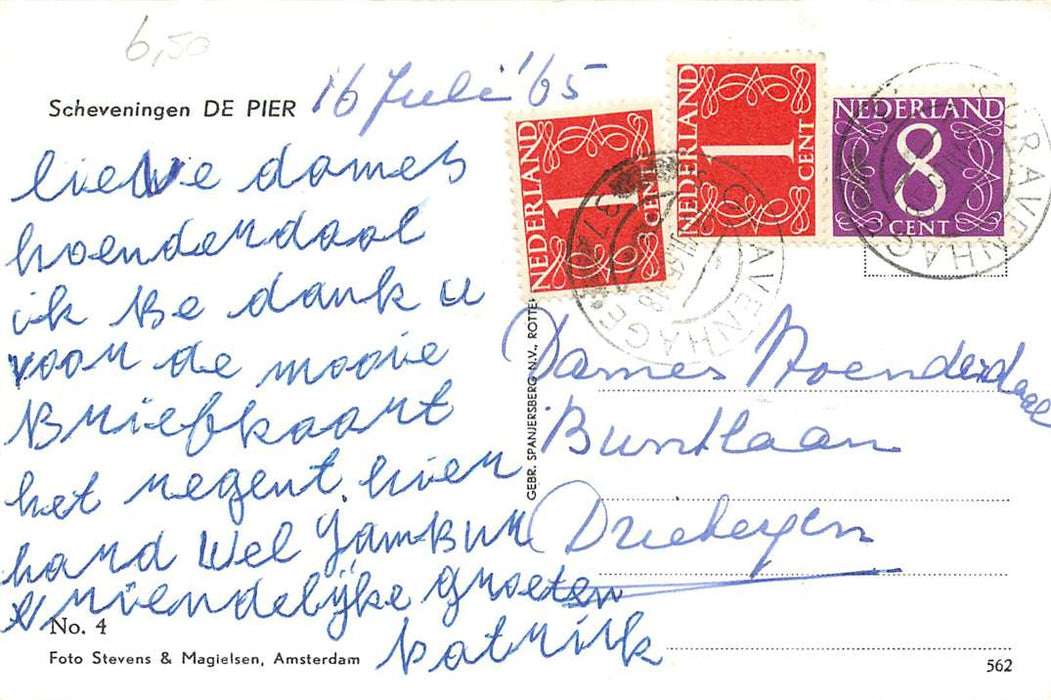 6,50
Scheveningen DE PIER
16 Juli '65
lieve dames
hoenderdaal
ik Be dank u
voor de mooie
Briefkaart
het regent hier
hard Wel Jambur
vriendelijke groeten
patrick
No. 4
Foto Stevens & Magielsen, Amsterdam
GEBR. SPANJERSBERG N.V., ROTTER
NEDERLAND
1
CENT
NEDERLAND
1
CENT
NEDERLAND
8
CENT
GRAVENHAGE
GRAVENHAGE
Dames Hoenderdaal
Buntlaan
Driebergen
562